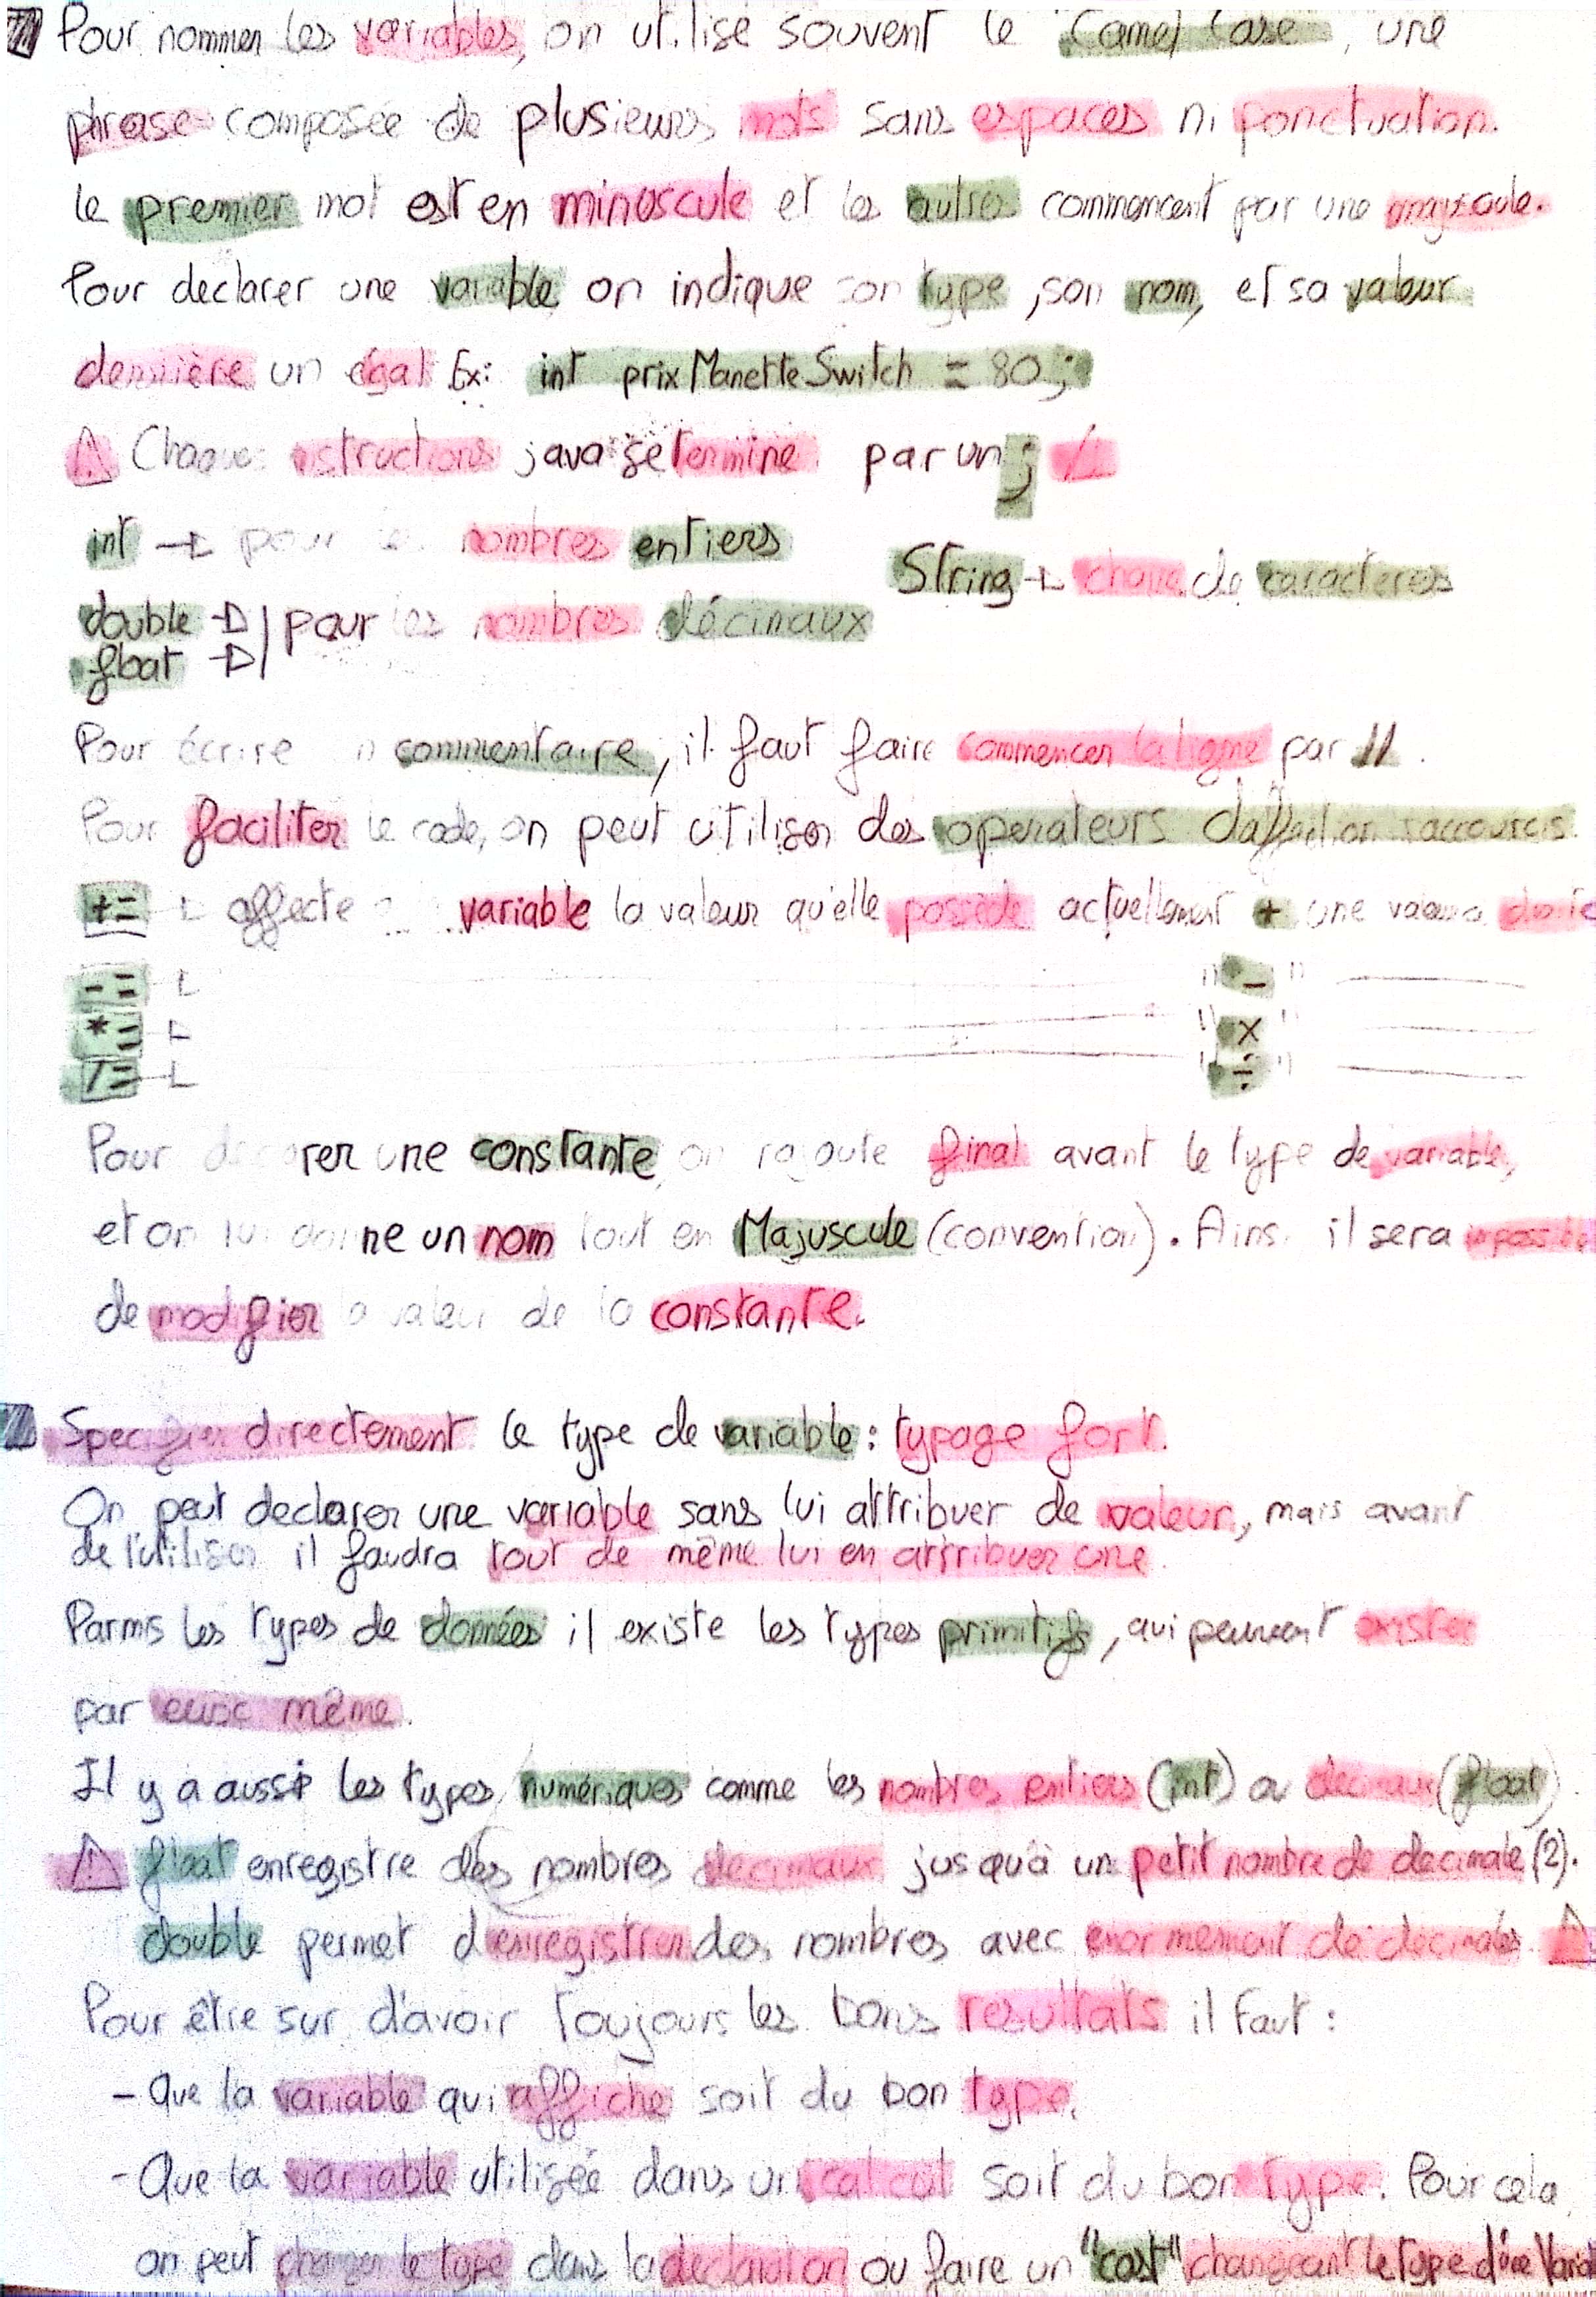 Pour nommer les variables, on utilise souvent le Camel Case, une
phrase composée de plusieurs mots sans espaces ni ponctuation.
le premier mot est en minuscule et les autres commencent par une majuscule.
Pour declarer une variable on indique son type, son nom, et sa valeur
derrière un égal Ex: int prixManetteSwitch = 80;
⚠ Chaque instructions java se termine par un ; ⚠
int → pour les nombres entiers
String → chaine de caracteres
double → | pour les nombres décimaux
float → |
Pour écrire un commentaire, il faut faire commencer la ligne par //.
Pour faciliter le code, on peut utiliser des operateurs raccourcis
+= → affecte variable la valeur qu'elle possède actuellement + une valeur
-= → " - "
*= → " x "
/= → " ÷ "
Pour declarer une constante, on rajoute final avant le type de variable,
et on lui donne un nom tout en Majuscule (convention). Ainsi il sera impossible
de modifier la valeur de la constante.
Specifier directement le type de variable : typage fort.
On peut declarer une variable sans lui attribuer de valeur, mais avant
de l'utiliser il faudra tout de même lui en attribuer une.
Parmis les types de données il existe les types primitifs, qui peuvent exister
par eux même.
Il y a aussi les types numériques comme les nombres entiers (int) ou decimaux (float).
⚠ float enregistre des nombres decimaux jusqu'à un petit nombre de decimale (2).
double permet d'enregistrer des nombres avec enormement de decimales. ⚠
Pour être sur d'avoir toujours les bons resultats il faut :
- Que la variable qui affiche soit du bon type.
- Que la variable utilisée dans un calcul soit du bon type. Pour cela
on peut changer le type dans la declaration ou faire un "cast" changeant le type d'une